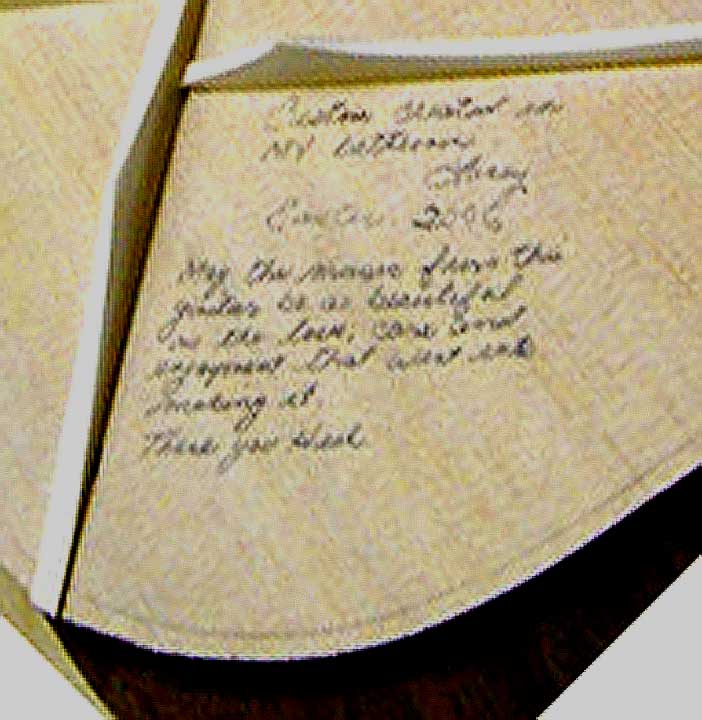 Custom Created
Easter 2006
May the music from this
guitar be as beautiful
as the love, care and
enjoyment that went into
making it.
Thank you